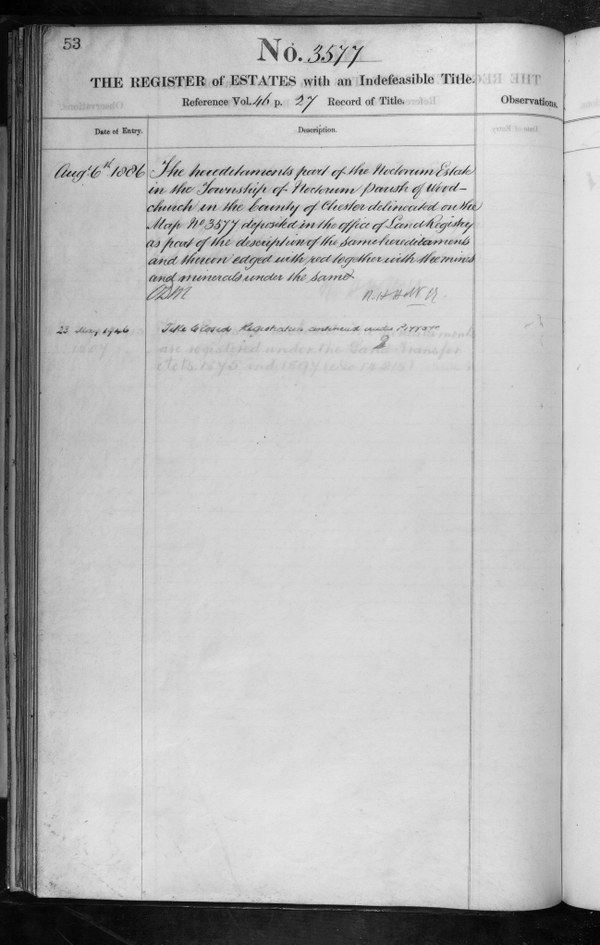 53
No. 3577
THE REGISTER of ESTATES with an Indefeasible Title.
Reference Vol. 46 p. 27 Record of Title.
Observations.
Date of Entry.
Description.
Augt 6th 1886
The hereditaments part of the Noctorum Estate
in the Township of Noctorum parish of Wood-
church in the County of Chester delineated on the
Map No 3577 deposited in the office of Land Registry
as part of the description of the same hereditaments
and thereon edged with red together with the mines
and minerals under the same.
23 May 1946
Title Closed. Registration continued under
are registered under the Land Transfer
Acts 1875 and 1897